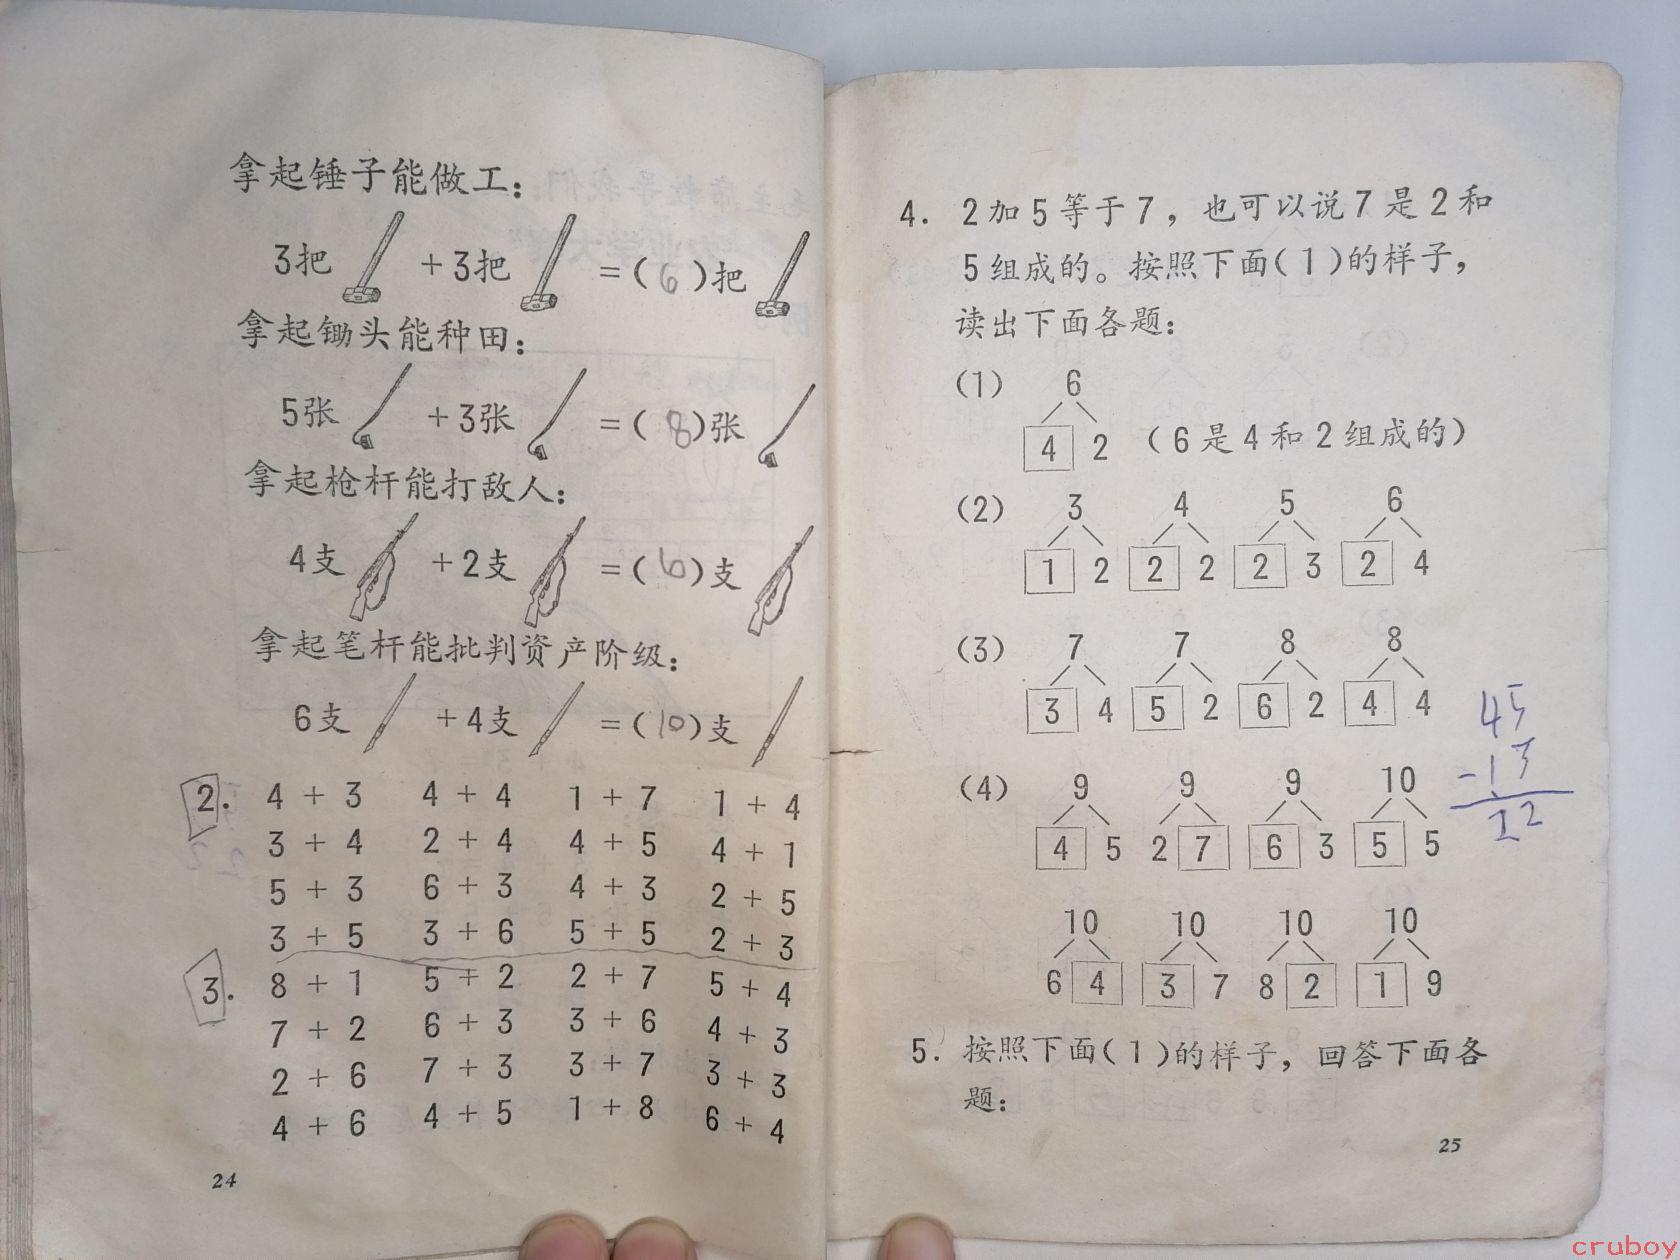 拿起锤子能做工：
3把 +3把 =(6)把
拿起锄头能种田：
5张 +3张 =(8)张
拿起枪杆能打敌人：
4支 +2支 =(6)支
拿起笔杆能批判资产阶级：
6支 +4支 =(10)支
2. 4+3 4+4 1+7 1+4
3+4 2+4 4+5 4+1
5+3 6+3 4+3 2+5
3+5 3+6 5+5 2+3
3. 8+1 5+2 2+7 5+4
7+2 6+3 3+6 4+3
2+6 7+3 3+7 3+3
4+6 4+5 1+8 6+4
24
4. 2加5等于7，也可以说7是2和
5组成的。按照下面(1)的样子，
读出下面各题：
(1) 6
4 2 (6是4和2组成的)
(2) 3 4 5 6
1 2 2 2 2 3 2 4
(3) 7 7 8 8
3 4 5 2 6 2 4 4
(4) 9 9 9 10
4 5 2 7 6 3 5 5
10 10 10 10
6 4 3 7 8 2 1 9
45
-13
12
5. 按照下面(1)的样子，回答下面各
题：
25
cruboy